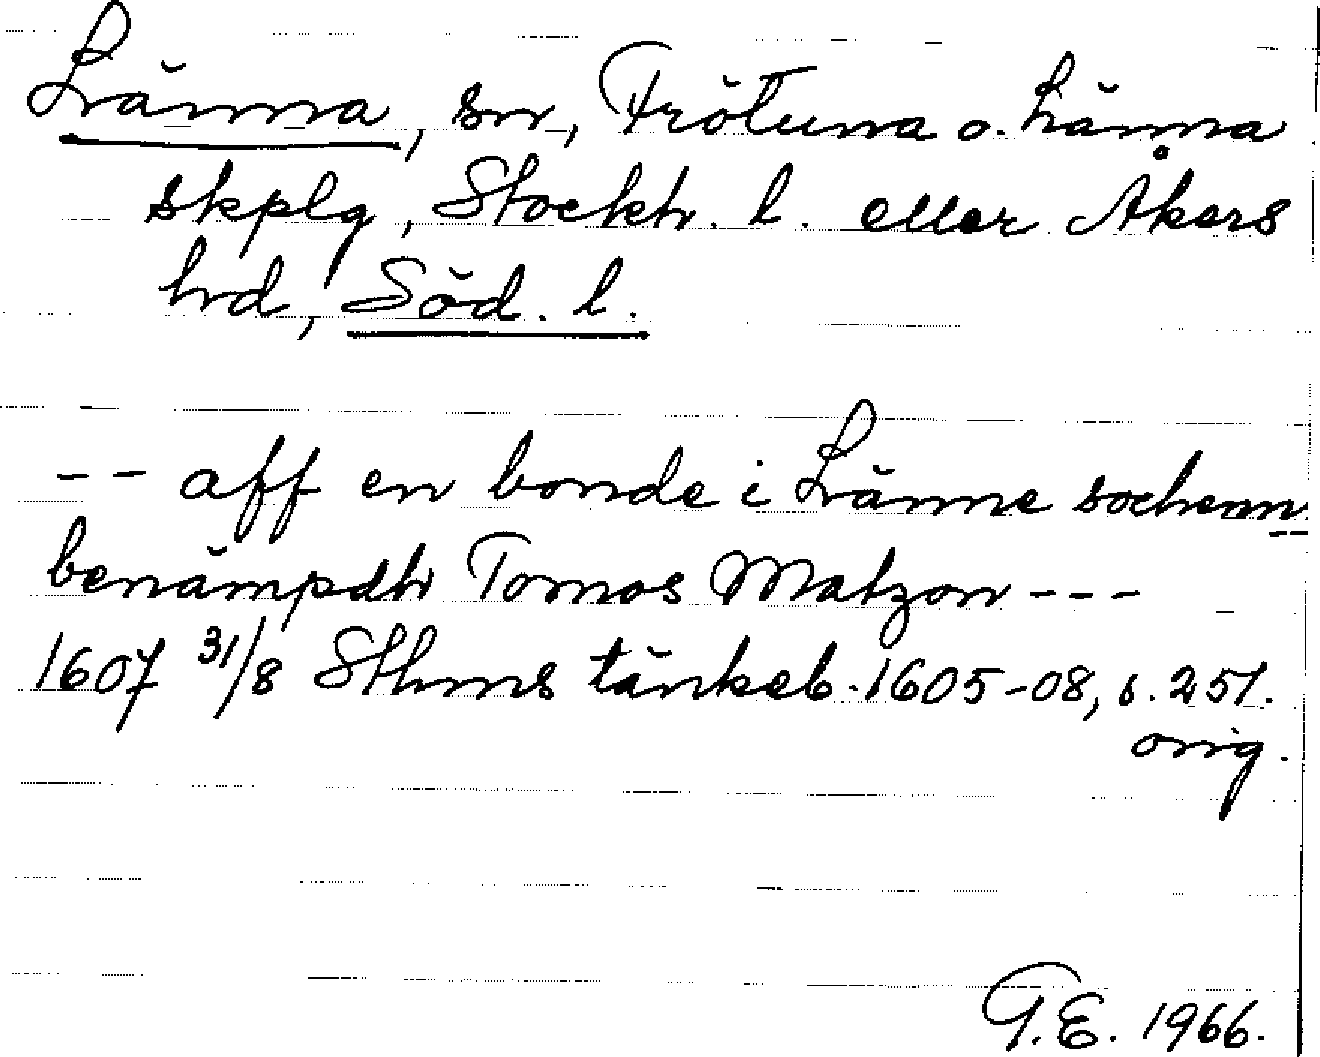 Länna, sn, Frötuna o. Länna
skplg, Stockh. l. eller Åkers
hrd, Söd. l.
-- aff en bonde i Länne sochenn
benämpdh Tomos Matzon ---
1607 31/8 Sthms tänkeb. 1605-08, s. 251.
orig.
G.E. 1966.